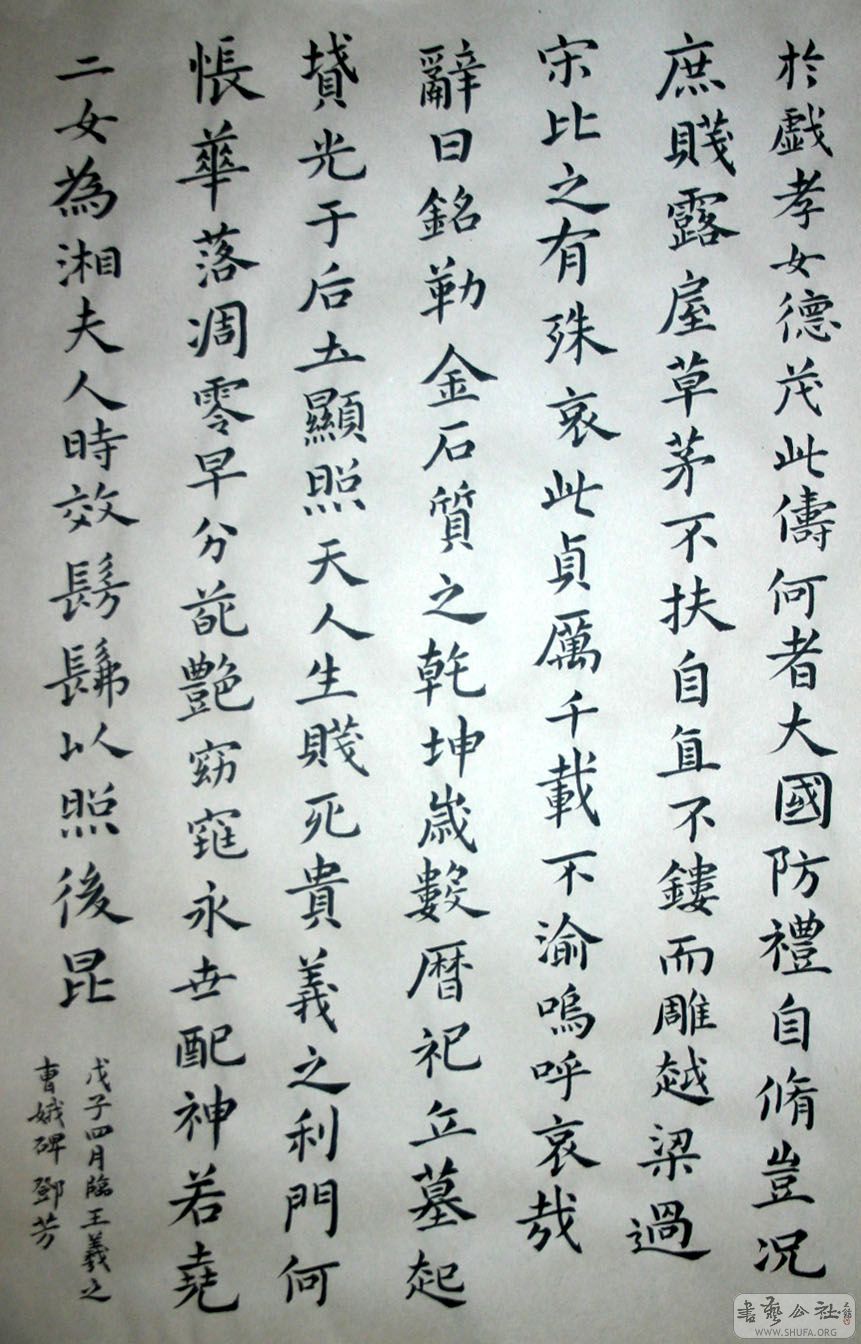 於戲孝女德茂此儔何者大國防禮自脩豈况
庶賤露屋草茅不扶自直不鏤而雕越梁過
宋比之有殊哀此貞厲千載不渝嗚呼哀哉
辭曰銘勒金石質之乾坤歲數曆祀丘墓起
墳光于后土顯照天人生賤死貴義之利門何
悵華落凋零早分葩艷窈窕永世配神若堯
二女為湘夫人時效髣髴以照後昆
戊子四月臨王羲之
曹娥碑鄧芳
書藝公社
WWW.SHUFA.ORG